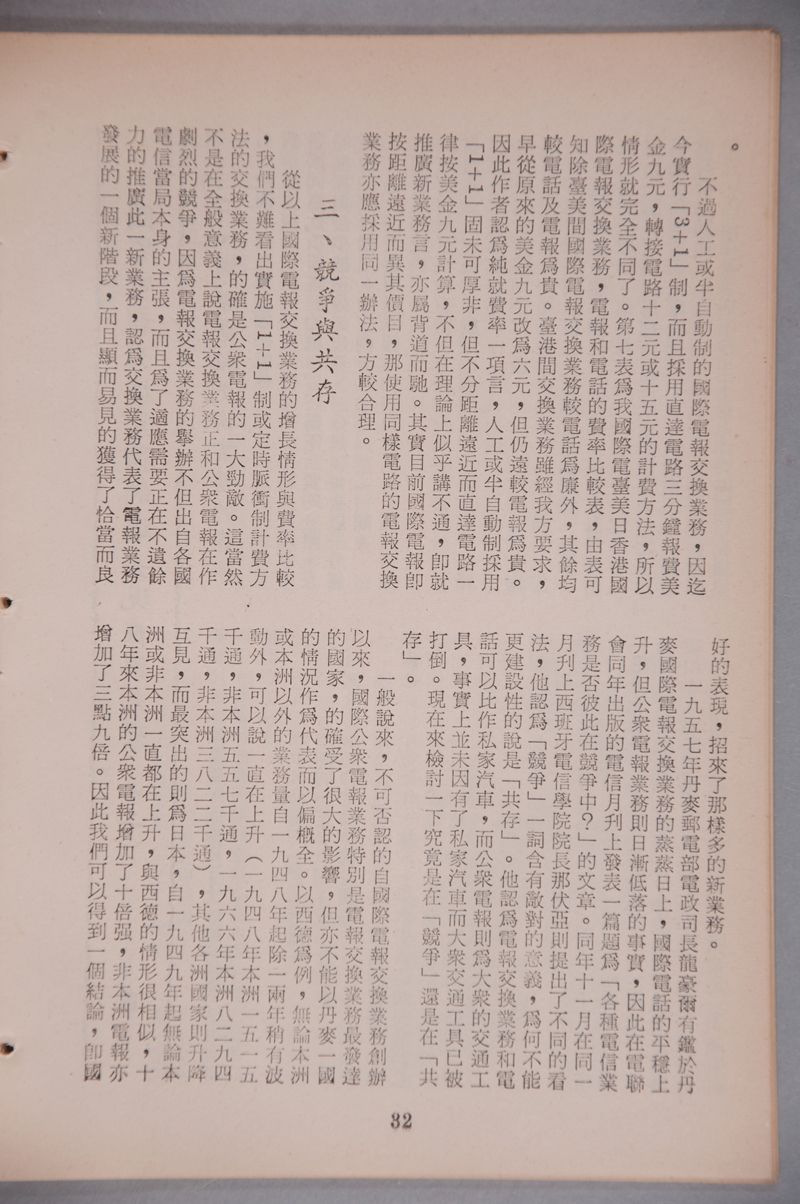 。
不過人工或半自動制的國際電報交換業務，因迄
今實行「3+1」制，而且採用直達電路三分鐘報費美
金九元，轉接電路十二元或十五元的計費方法，所以
情形就完全不同了。第七表爲我國際電臺美日香港國
際電報交換業務，電報和電話的費率比較表，由表可
知除臺美間國際電報交換業務較電話爲廉外，其餘均
較電話及電報爲貴。臺港間交換業務雖經我方要求，
早從原來的美金九元改爲六元，但仍遠較電報爲貴。
因此作者認爲純就費率一項言，人工或半自動制採用
「1+1」固未可厚非，但不分距離遠近而直達電路一
律按美金九元計算，不但在理論上似乎講不通，卽就
推廣新業務言，亦屬背道而馳。其實目前國際電報卽
按距離遠近而異其價目，那使用同樣電路的電報交換
業務亦應採用同一辦法，方較合理。
三、競爭與共存
從以上國際電報交換業務的增長情形與費率比較
，我們不難看出實施「1+1」制或定時脈衝制計費方
法的交換業務，的確是公衆電報的一大勁敵。這當然
不是在全般意義上說電報交換業務正和公衆電報在作
劇烈的競爭，因爲電報交換業務的舉辦不但出自各國
電信當局本身的主張，而且爲了適應需要正在不遺餘
力的推廣此一新業務，認爲交換業務代表了電報業務
發展的一個新階段，而且顯而易見的獲得了恰當而良
好的表現，招來了那樣多的新業務。
一九五七年丹麥郵電部電政司長龍豪爾有鑑於丹
麥國際電報交換業務的蒸蒸日上，國際電話的平穩上
升，但公衆電報業務則日漸低落的事實，因此在電聯
會同年出版的電信月刊上發表一篇題爲「各種電信業
務是否彼此在競爭中？」的文章。同年十一月在同一
月刊上西班牙電信學院院長那伏亞則提出了不同的看
法，他認爲「競爭」一詞含有敵對的意義，爲何不能
更建設性的說是「共存」。他認爲電報交換業務和電
話可以比作私家汽車，而公衆電報則爲大衆的交通工
具，事實上並未因有了私家汽車而大衆交通工具已被
打倒。現在來檢討一下究竟是在「競爭」還是在「共
存」。
一般說來，不可否認的自國際電報交換業務創辦
以來，國際公衆電報業務特別是電報交換業務最發達
的國家，的確受了很大的影響，但亦不能以丹麥一國
的情況作爲代表而以偏概全。以西德爲例，無論本洲
或本洲以外的業務量自一九四八年起除一兩年稍有波
動外，可以說一直在上升（一九四八年本洲一五一五
千通，非本洲五五七千通，一九六六年本洲八二九四
千通，非本洲三八二二千通），其他各洲國家則升降
互見，而最突出的則爲日本，自一九四九年起無論本
洲或非本洲一直都在上升，與西德的情形很相似，十
八年來本洲的公衆電報增加了十倍强，非本洲電報亦
增加了三點九倍。因此我們可以得到一個結論，卽國
32